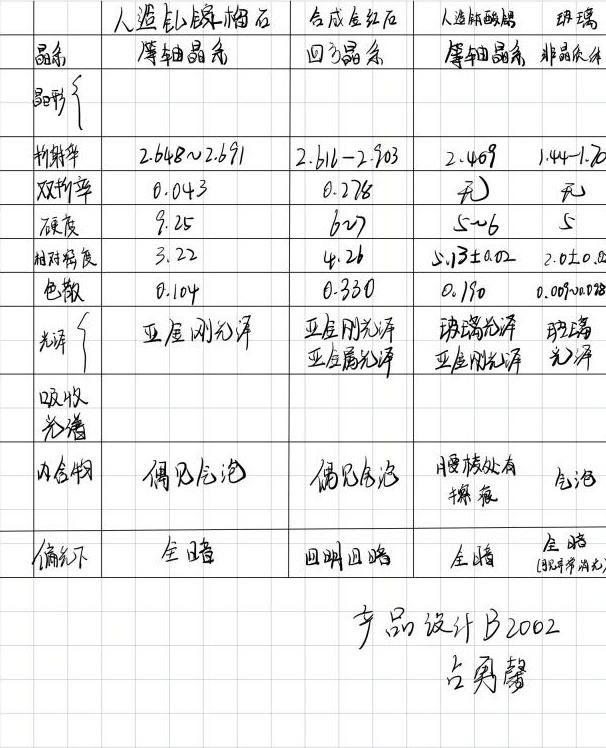 人造钆镓榴石 合成金红石 人造钛酸锶 玻璃
晶系 等轴晶系 四方晶系 等轴晶系 非晶质体
晶形
折射率 2.648~2.691 2.616-2.903 2.409 1.44-1.70
双折率 0.043 0.278 无 无
硬度 9.25 6~7 5~6 5
相对密度 3.22 4.26 5.13±0.02 2.0±0.0
色散 0.104 0.330 0.190 0.009~0.098
光泽 亚金刚光泽 亚金刚光泽 玻璃光泽 玻璃
亚金属光泽 亚金刚光泽 光泽
吸收
光谱
内含物 偶见气泡 偶见气泡 腰棱处有 气泡
擦痕
偏光下 全暗 四明四暗 全暗 全暗
(异常消光)
产品设计B2002
占勇馨